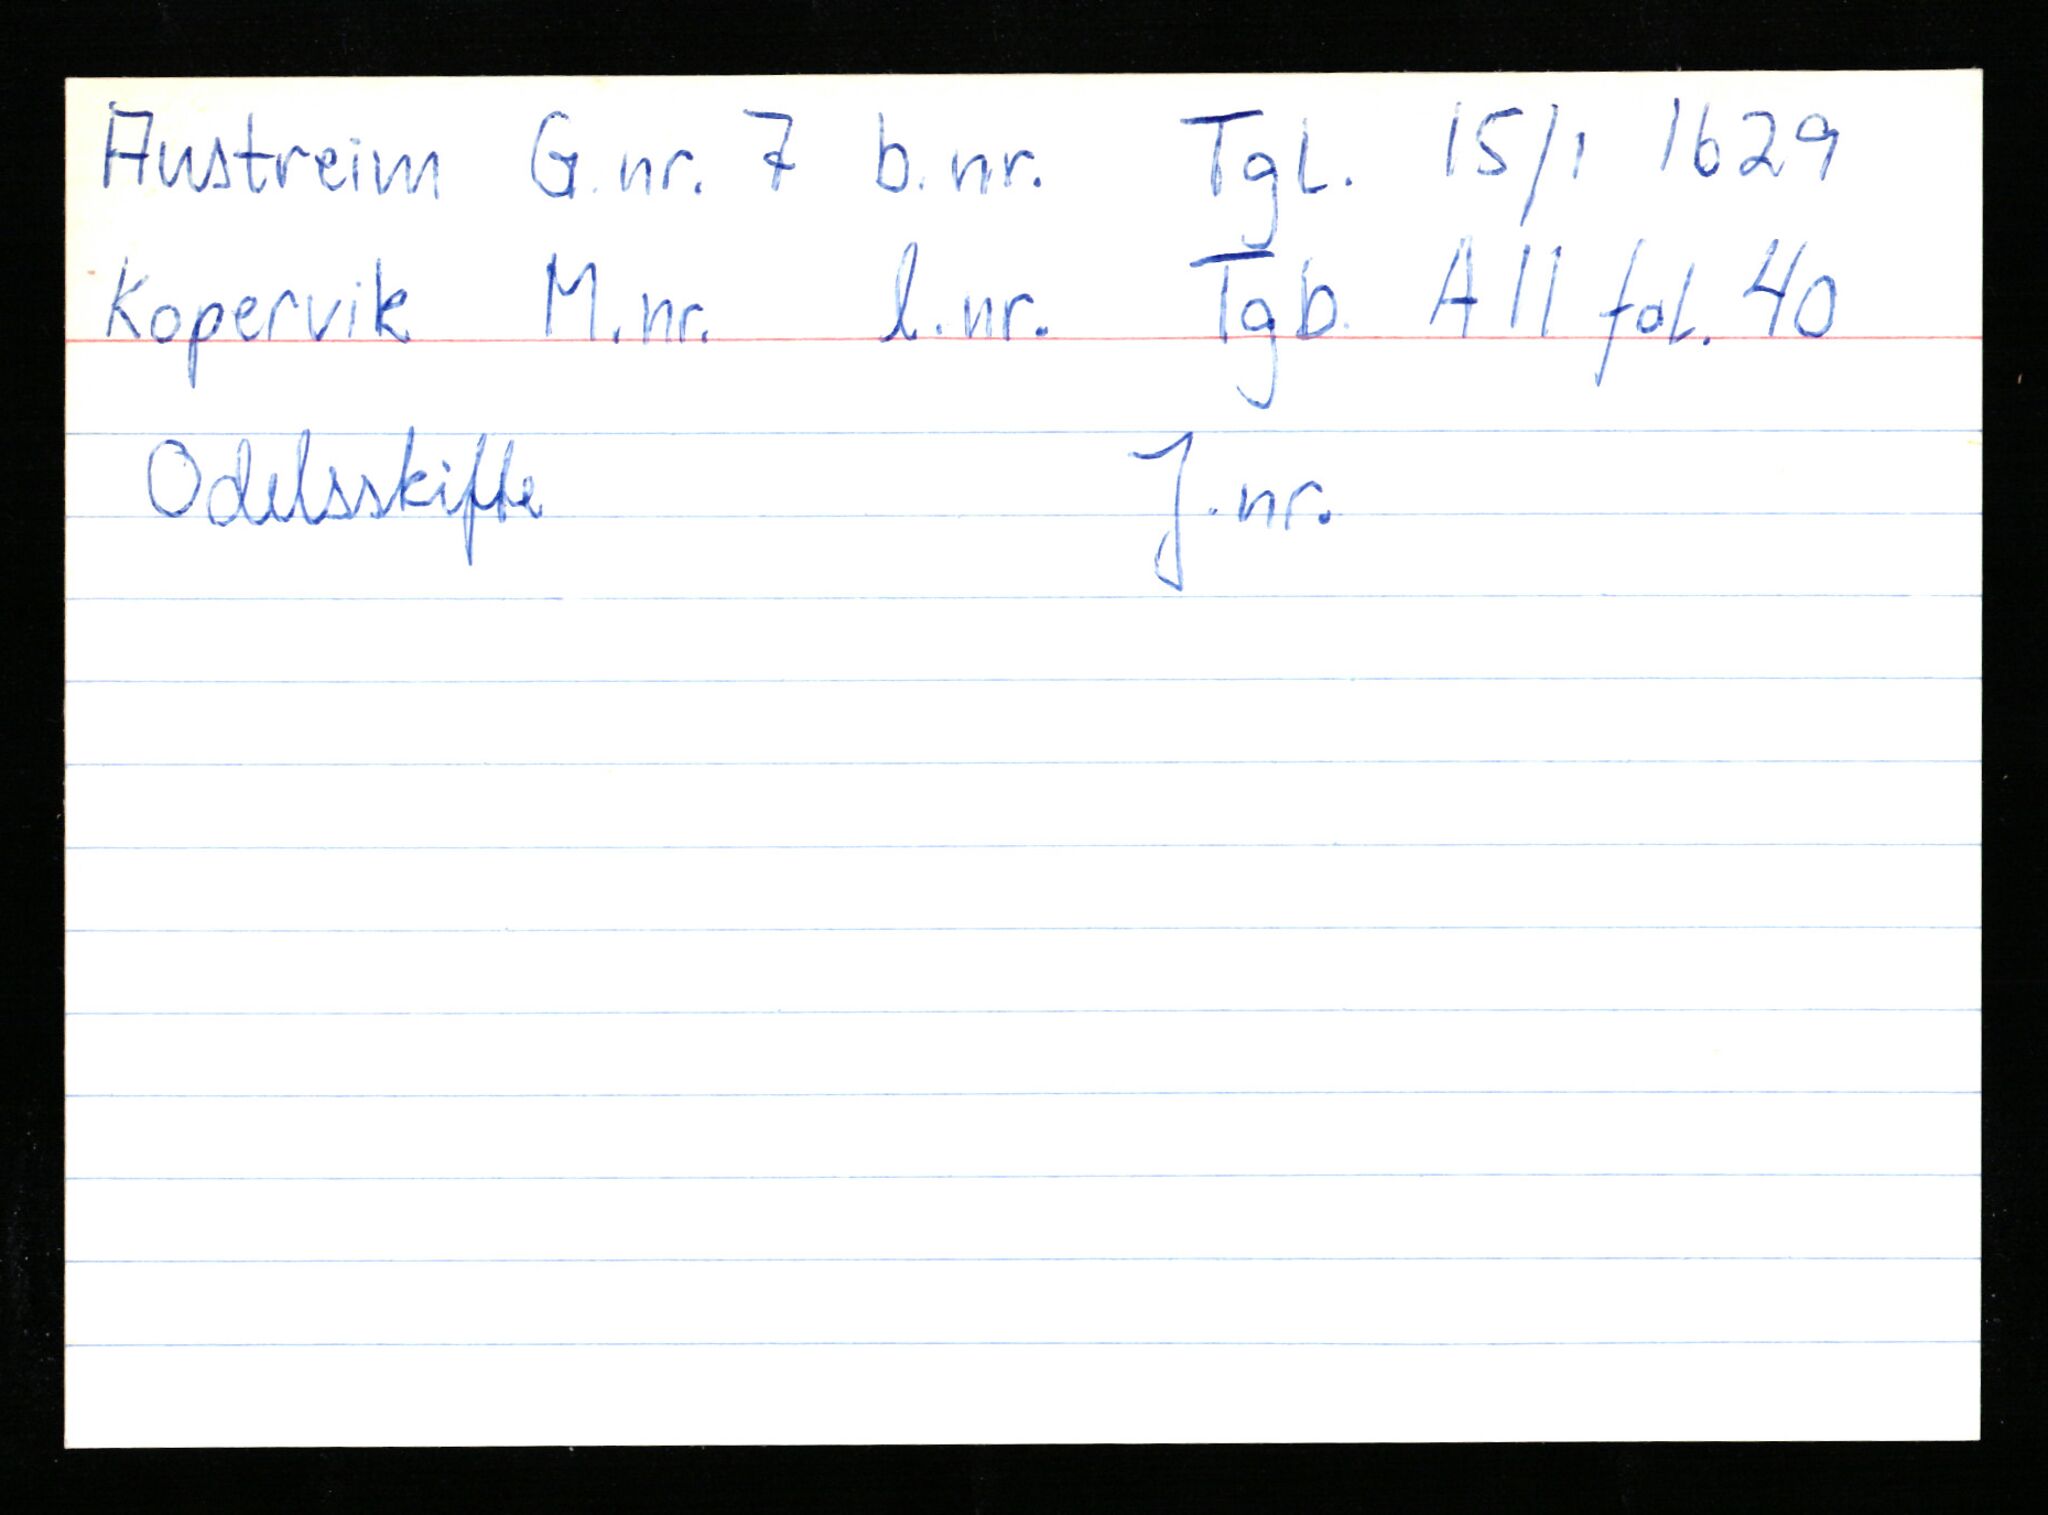 Austreim G.nr. 7 b.nr. Tgl. 15/1 1629
Kopervik M.nr. l.nr. Tgb. A 11 fol. 40
Odelsskifte J.nr.